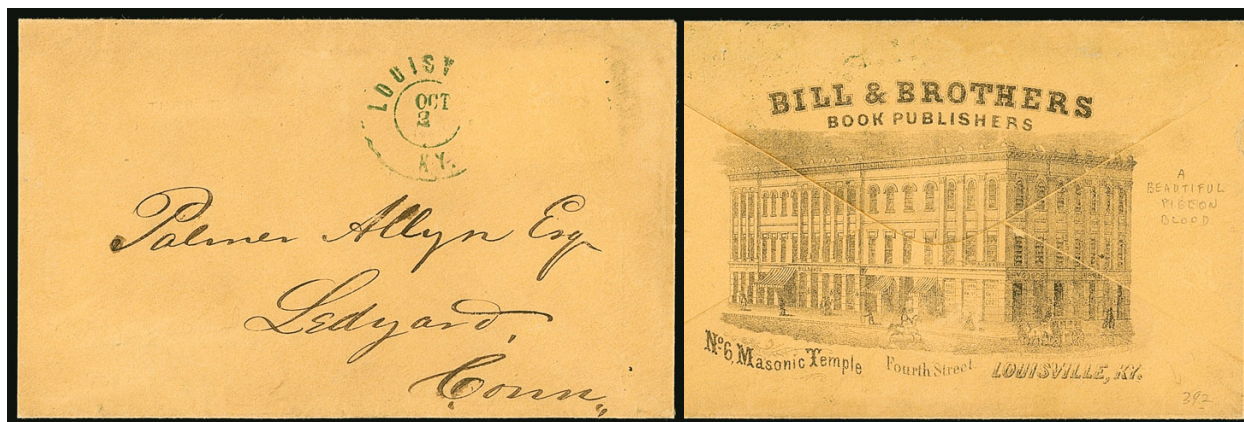 LOUISV
OCT
2
KY.
Palmer Allyn Esq
Ledyard,
Conn,,
BILL & BROTHERS
BOOK PUBLISHERS
A
BEAUTIFUL
PIGEON
BLOOD
No 6, Masonic Temple Fourth Street. LOUISVILLE, KY.
392